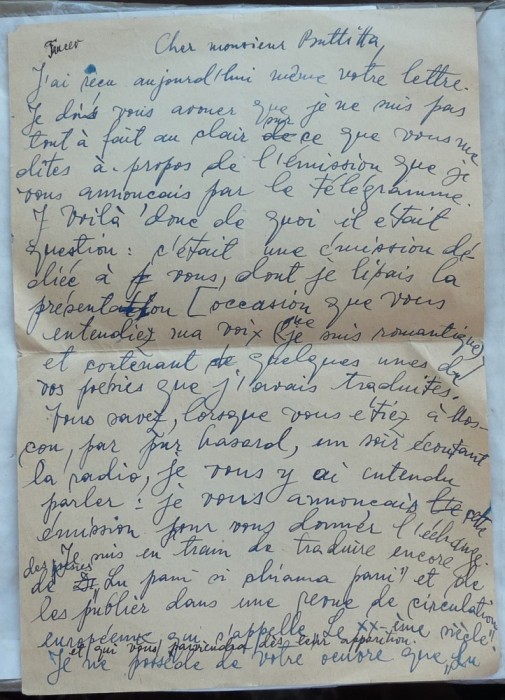 Cher monsieur Buttitta,
J'ai reçu aujourd'hui même votre lettre.
Je dois vous avouer que je ne suis pas
tout à fait au clair sur ce que vous me
dites à propos de l'émission que je
vous annonçais par le télégramme.
Voilà donc de quoi il était
question : c'était une émission dé
diée à vous, dont je lisais la
présentation [occasion que vous
entendiez ma voix (que je suis romantique)]
et contenant quelques unes de
vos poésies que j'avais traduites.
Vous savez, lorsque vous étiez à Mos-
cou, par pur hasard, un soir écoutant
la radio, je vous y ai entendu
parler : je vous annonçais cette
émission pour vous donner l'échange.
Je suis en train de traduire encore
des poésies
de "Lu pani si chiama pani" et de
les publier dans une revue de circulation
européenne qui s'appelle Le XX-ième siècle"
et qui vous parviendra dès leur apparition.
Je ne possède de votre oeuvre que „Lu